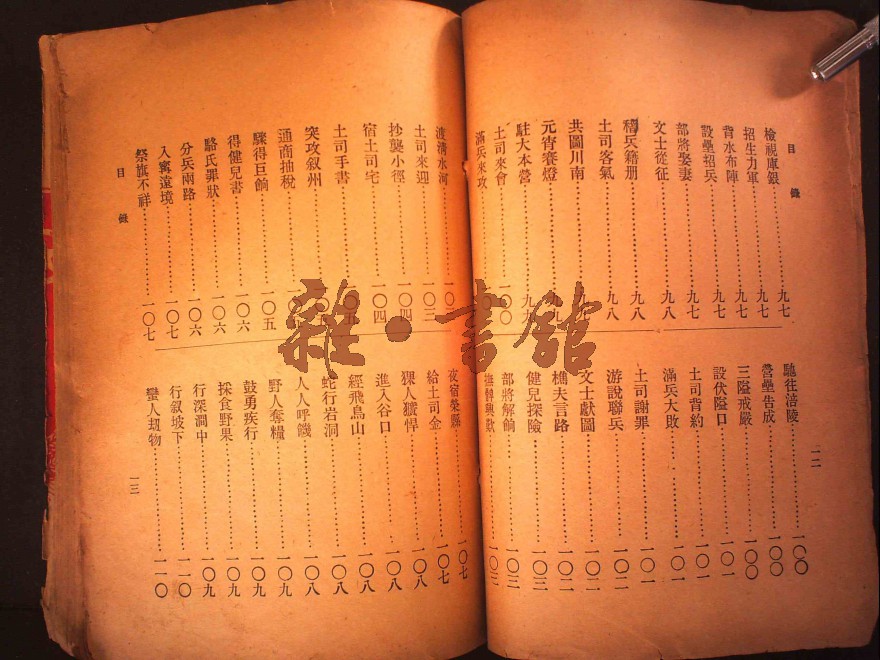 目錄
檢視庫銀⋯⋯九七
招生力軍⋯⋯九七
背水布陣⋯⋯九七
設壘招兵⋯⋯九七
部將娶妻⋯⋯九七
文士從征⋯⋯九八
稽兵籍册⋯⋯九八
土司客氣⋯⋯九八
共圖川南⋯⋯九
元宵賽燈⋯⋯九
駐大本營⋯⋯九九
土司來會⋯⋯一〇〇
滿兵來攻
馳往涪陵⋯⋯一〇〇
營壘告成⋯⋯一〇〇
三隘戒嚴⋯⋯一〇〇
設伏隘口⋯⋯一〇一
土司背約⋯⋯一〇一
滿兵大敗⋯⋯一〇一
土司謝罪⋯⋯一〇一
游說聯兵⋯⋯一〇二
文士獻圖⋯⋯一〇二
樵夫言路⋯⋯一〇二
健兒探險⋯⋯一〇三
部將解餉⋯⋯一〇三
撫髀興歎⋯⋯一〇三
一二
渡清水河⋯⋯一〇
土司來迎⋯⋯一〇三
抄襲小徑⋯⋯一〇四
宿土司宅⋯⋯一〇四
土司手書
突攻叙州
通商抽稅
驟得巨餉⋯⋯一〇五
得健兒書⋯⋯一〇六
駱氏罪狀⋯⋯一〇六
分兵兩路⋯⋯一〇六
入寗遠境⋯⋯一〇七
祭旗不祥⋯⋯一〇七
目錄
夜宿榮縣⋯⋯一〇七
給土司金⋯⋯一〇七
猓人獷悍⋯⋯一〇八
進入谷口⋯⋯一〇八
經飛鳥山⋯⋯一〇八
蛇行岩洞⋯⋯一〇八
人人呼饑⋯⋯一〇八
野人奪糧⋯⋯一〇九
鼓勇疾行⋯⋯一〇九
採食野果⋯⋯一〇九
行深澗中⋯⋯一〇九
行叙坡下⋯⋯一一〇
蠻人刼物⋯⋯一一〇
一三
雜·書館